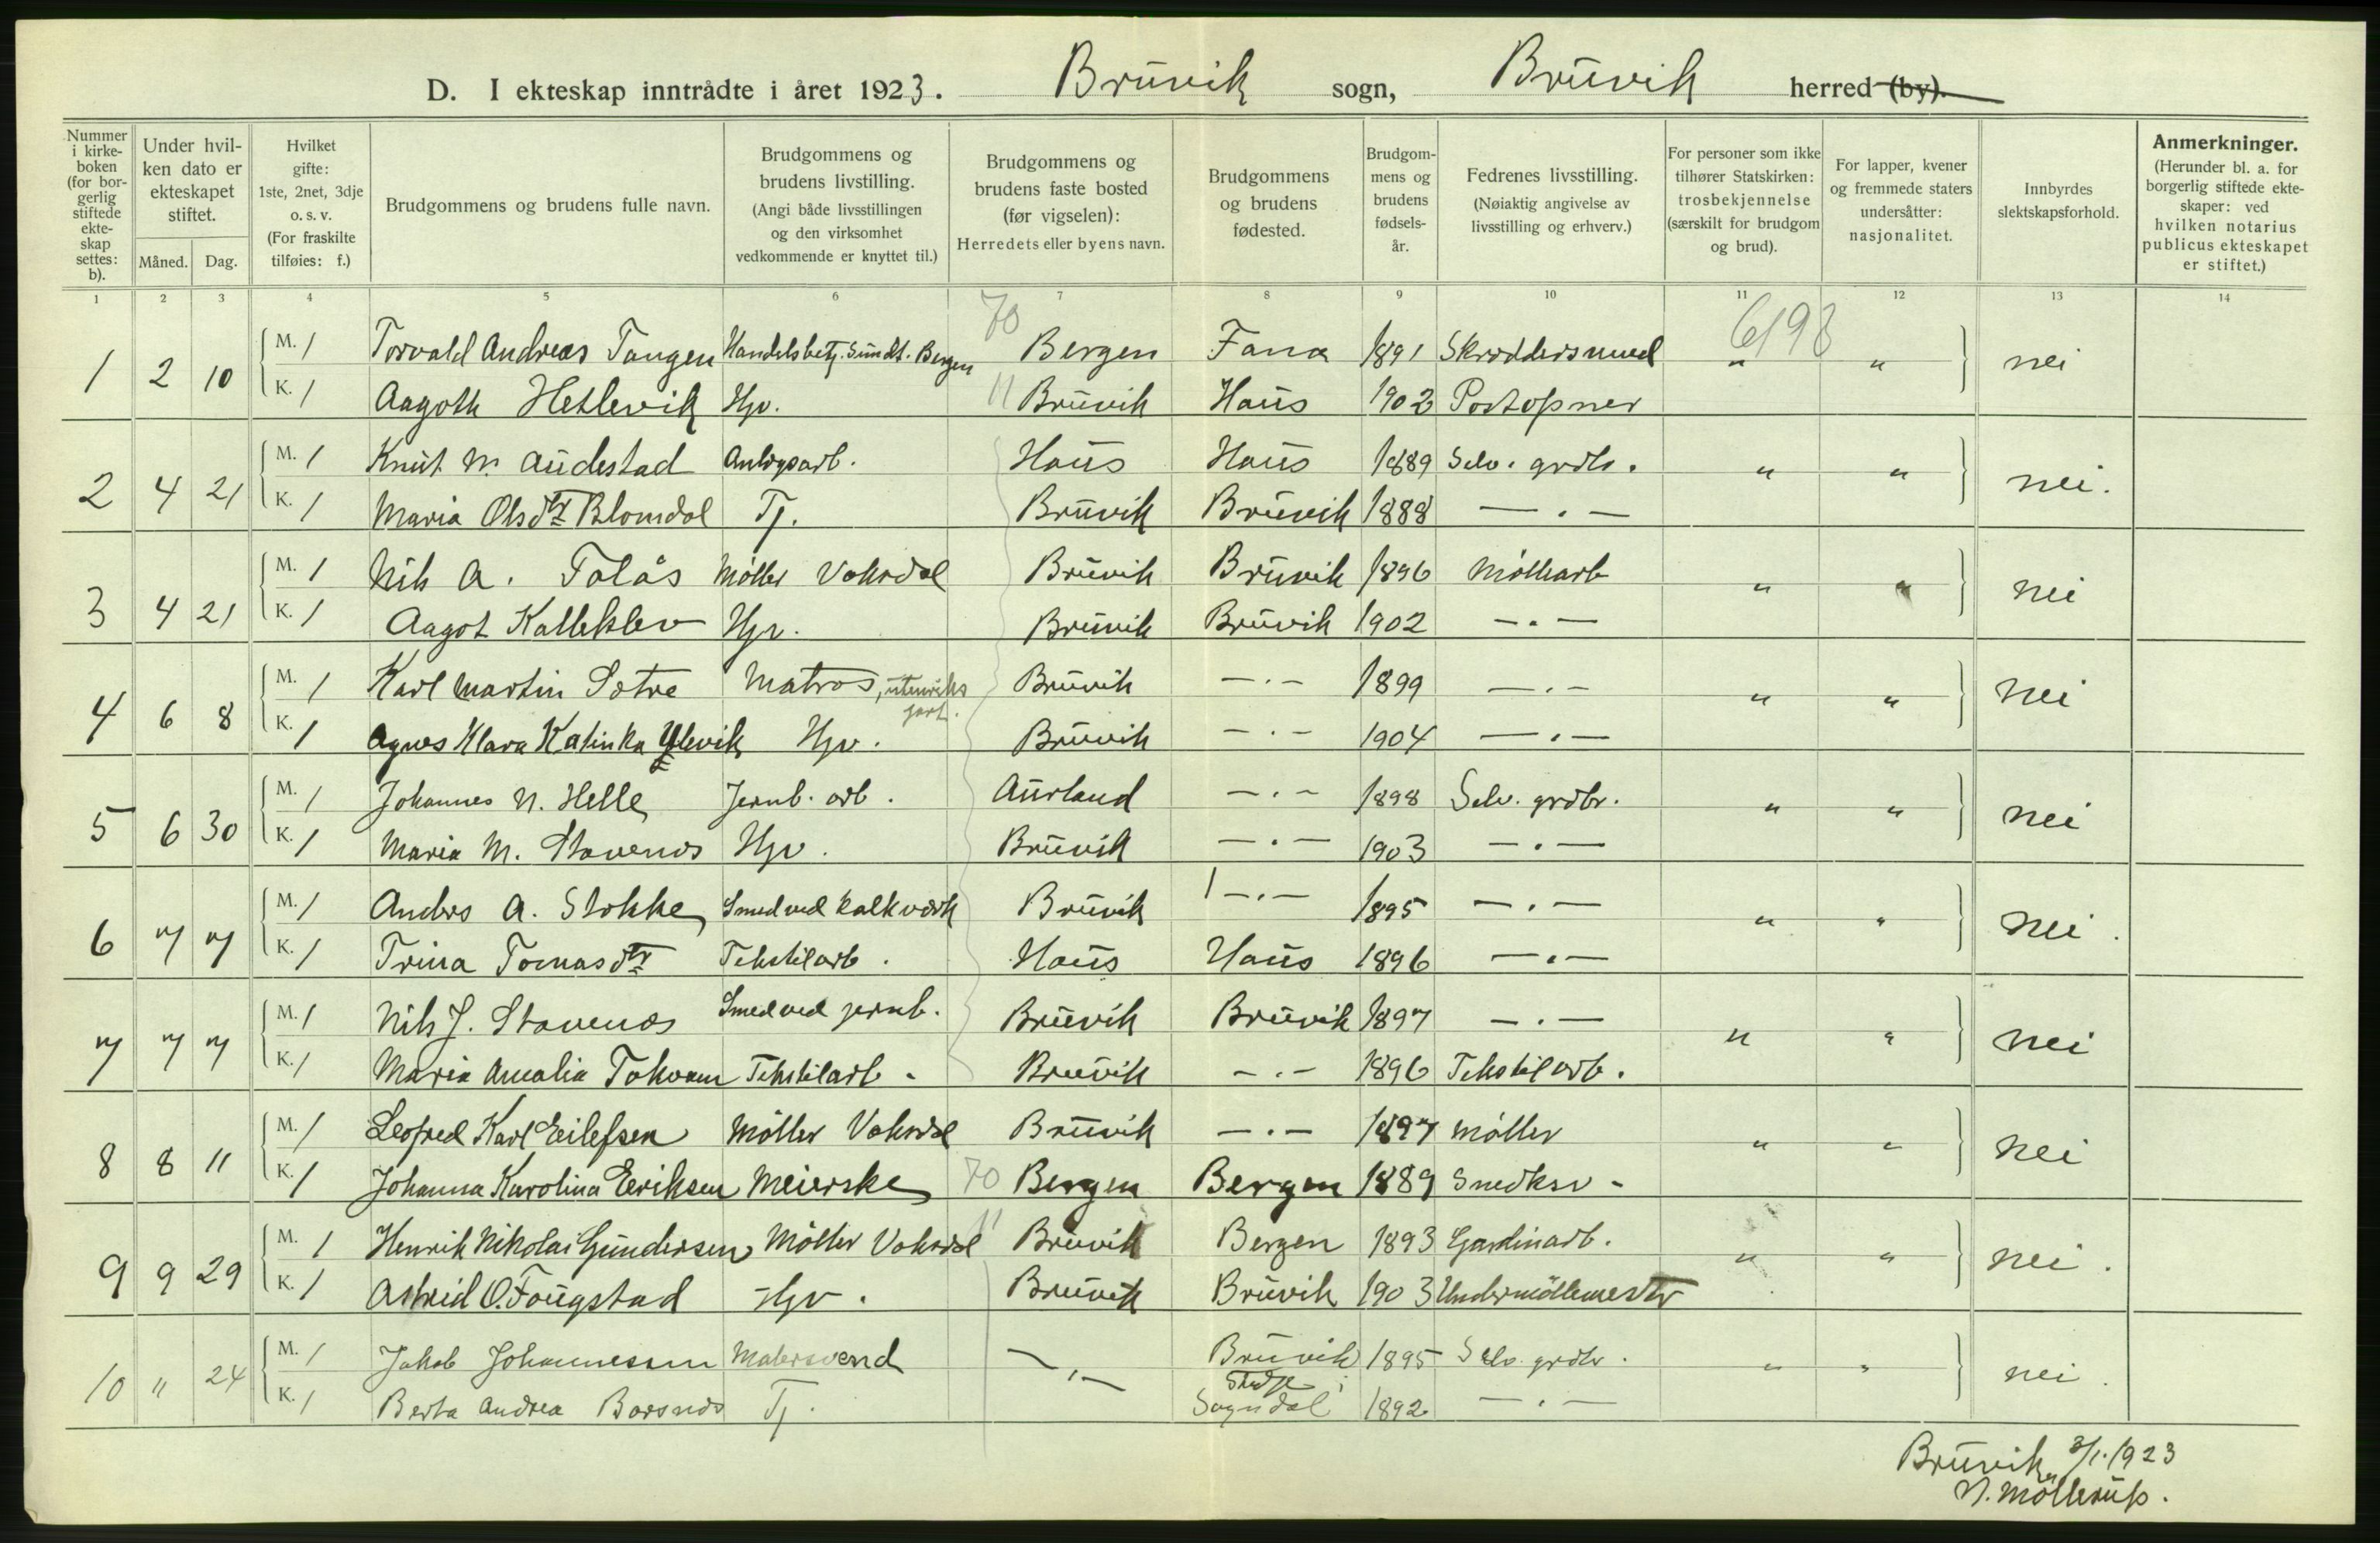 D. I ekteskap inntrådte i året 1923. Bruvik sogn, Bruvik herred (by).
Nummer i kirkeboken (for borgerlig stiftede ekteskap settes: b).
Under hvilken dato er ekteskapet stiftet.
Måned. Dag.
Hvilket gifte: 1ste, 2net, 3dje o. s. v. (For fraskilte tilføies: f.)
Brudgommens og brudens fulle navn.
Brudgommens og brudens livstilling. (Angi både livsstillingen og den virksomhet vedkommende er knyttet til.)
Brudgommens og brudens faste bosted (før vigselen): Herredets eller byens navn.
Brudgommens og brudens fødested.
Brudgommens og brudens fødselsår.
Fedrenes livsstilling. (Nøiaktig angivelse av livsstilling og erhverv.)
For personer som ikke tilhører Statskirken: trosbekjennelse (særskilt for brudgom og brud).
For lapper, kvener og fremmede staters undersåtter: nasjonalitet.
Innbyrdes slektskapsforhold.
Anmerkninger. (Herunder bl. a. for borgerlig stiftede ekteskaper: ved hvilken notarius publicus ekteskapet er stiftet.)
1 2 3 4 5 6 7 8 9 10 11 12 13 14
70 6198
1 2 10 M. 1 Torvald Andreas Tangen Handelsbetj. Sundt. Bergen Bergen Fana 1891 Skræddersvend " " nei
K. 1 Aagoth Hetlevik Hjv. 11 Bruvik Haus 1902 Postopner
2 4 21 M. 1 Knut N. Audestad Anlegsarb. Haus Haus 1889 Selv. grdbr. " " nei.
K. 1 Maria Olsdtr Blomdal Tj. Bruvik Bruvik 1888 — . —
3 4 21 M. 1 Nils A. Tolås Møller Vaksdal Bruvik Bruvik 1896 Møllearb " " nei
K. 1 Aagot Kalleklev Hjv. Bruvik Bruvik 1902 — . —
4 6 8 M. 1 Karl Martin Sotre Matros, utenriks fart. Bruvik — . — 1899 — . — " " nei
K. 1 Agnes Klara Katinka Ylevik Hjv. Bruvik — . — 1904 — . —
5 6 30 M. 1 Johannes N. Helle Jernb. arb. Aurland — . — 1898 Selv. grdbr. " " nei
K. 1 Maria M. Stavenes Hjv. Bruvik — . — 1903 — . —
6 7 7 M. 1 Anders A. Stokke Smed ved kalkværk Bruvik — . — 1895 — . — " " nei.
K. 1 Trina Tomasdtr Tekstilarb. Haus Haus 1896 — . —
7 7 7 M. 1 Nils J. Stavenes Smed ved jernb. Bruvik Bruvik 1897 — . — " " nei
K. 1 Maria Amalia Tokvam Tekstilarb. Bruvik — . — 1896 Tekstilarb.
8 8 11 M. 1 Leofred Karl Eilefsen Møller Vaksdal Bruvik — . — 1897 Møller " " nei
K. 1 Johanna Karolina Eeriksen Meierske 70 Bergen Bergen 1889 Snedker.
9 9 29 M. 1 Henrik Nikolai Gundersen Møller Vaksdal 11 Bruvik Bergen 1893 Gardinarb. " " nei.
K. 1 Astrid O. Fougstad Hjv. Bruvik Bruvik 1903 Undermøllemester
10 " 24 M. 1 Jakob Johannessen Malersvend — . — Bruvik 1895 Selv. grdbr. " " nei.
K. 1 Berta Andrea Borsnes Tj. Stedje i Sogndal 1892 — . —
Bruvik 3/1. 1923
N. Møllerup.